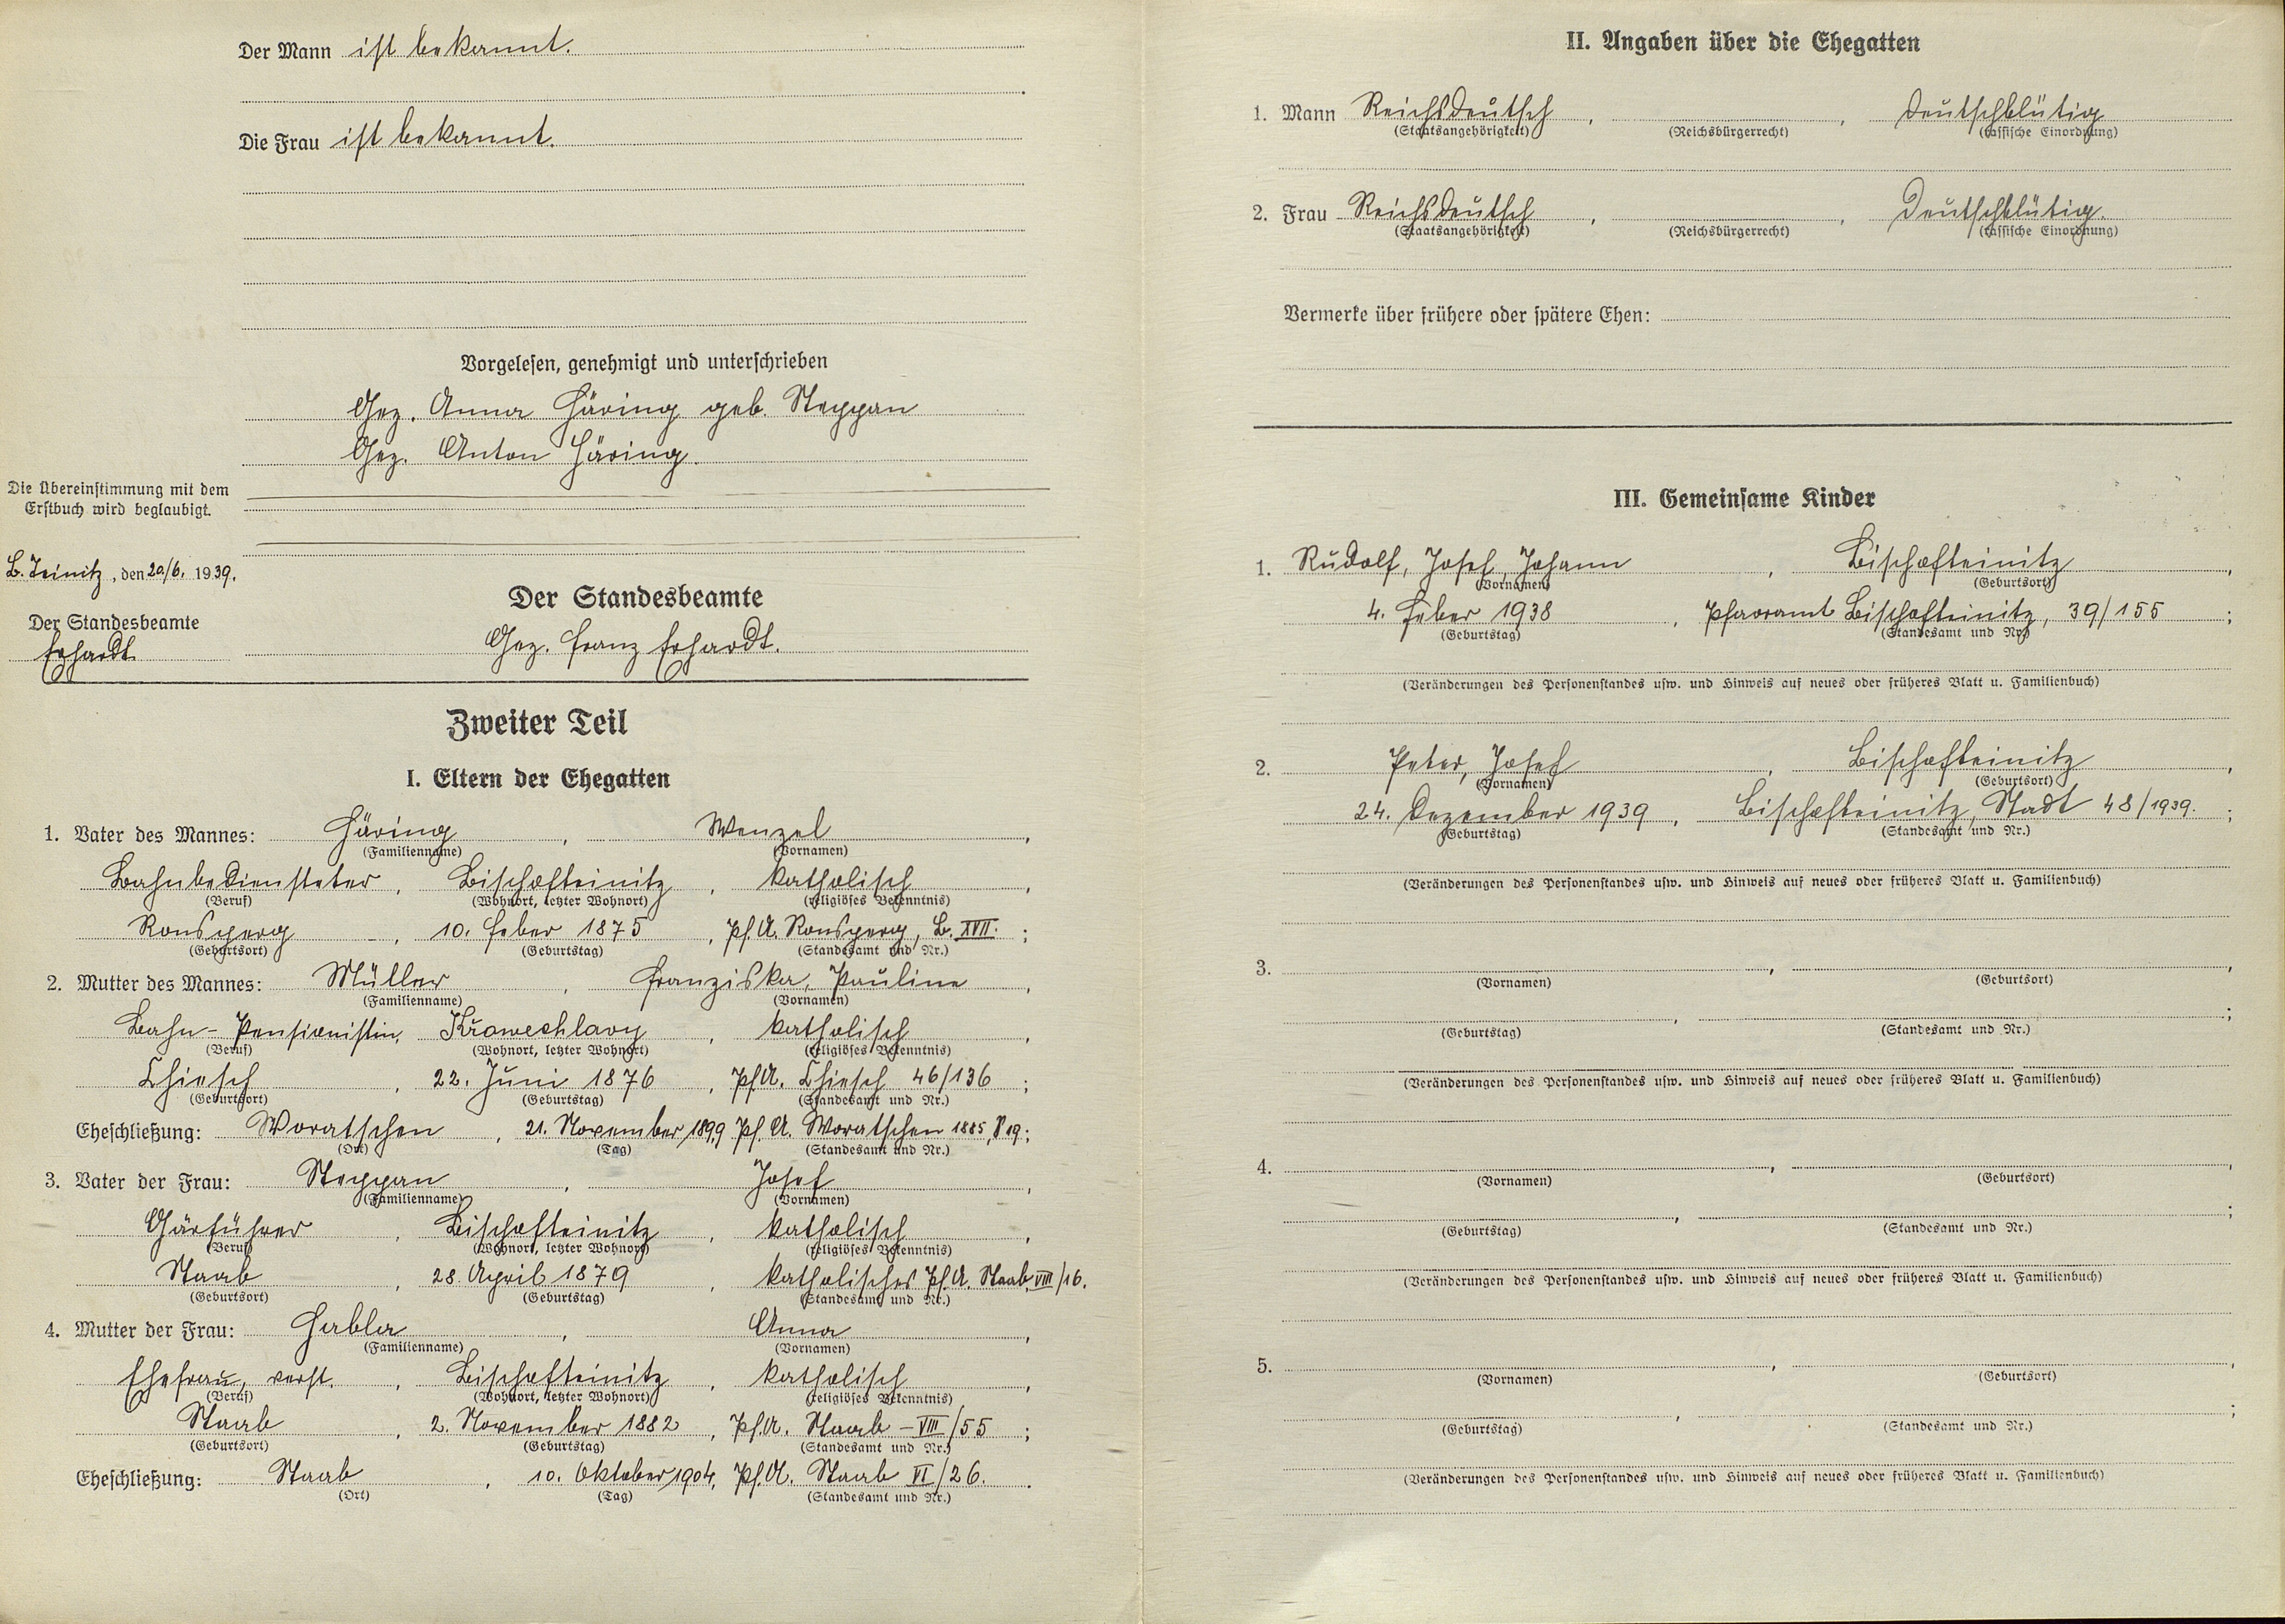 Der Mann ist bekannt.
Die Frau ist bekannt.
Vorgelesen, genehmigt und unterschrieben
Gez. Anna Häring geb. Steppan
Gez. Anton Häring.
Die Übereinstimmung mit dem
Erstbuch wird beglaubigt.
B. Teinitz, den 20/6. 1939.
Der Standesbeamte
Erhardt
Der Standesbeamte
Gez. Franz Erhardt.
Zweiter Teil
I. Eltern der Ehegatten
1. Vater des Mannes: Häring, Wenzel,
(Familienname) (Vornamen)
Bahnbediensteter, Bischofteinitz, katholisch,
(Beruf) (Wohnort, letzter Wohnort) (religiöses Bekenntnis)
Ronsperg, 10. Feber 1875, Pf.A. Ronsperg, B. XVII. ;
(Geburtsort) (Geburtstag) (Standesamt und Nr.)
2. Mutter des Mannes: Müller, Franziska, Pauline,
(Familienname) (Vornamen)
Bahn-Pensionistin, Křaweshlavy, katholisch,
(Beruf) (Wohnort, letzter Wohnort) (religiöses Bekenntnis)
Chiesch, 22. Juni 1876, Pf.A. Chiesch 46/136 ;
(Geburtsort) (Geburtstag) (Standesamt und Nr.)
Eheschließung: Woratschen, 21. November 1899 Pf.A. Woratschen 1885, 19. ;
(Ort) (Tag) (Standesamt und Nr.)
3. Vater der Frau: Steppan, Josef,
(Familienname) (Vornamen)
Gärführer, Bischofteinitz, katholisch,
(Beruf) (Wohnort, letzter Wohnort) (religiöses Bekenntnis)
Staab, 28. April 1879, katholisches Pf.A. Staab, VIII/16.
(Geburtsort) (Geburtstag) (Standesamt und Nr.)
4. Mutter der Frau: Habla, Anna,
(Familienname) (Vornamen)
Ehefrau, verst., Bischofteinitz, katholisch,
(Beruf) (Wohnort, letzter Wohnort) (religiöses Bekenntnis)
Staab, 2. November 1882, Pf.A. Staab – VIII/55 ;
(Geburtsort) (Geburtstag) (Standesamt und Nr.)
Eheschließung: Staab, 10. Oktober 1904, Pf.A. Staab VI/26.
(Ort) (Tag) (Standesamt und Nr.)
II. Angaben über die Ehegatten
1. Mann Reichsdeutsch, , Deutschblütig
(Staatsangehörigkeit) (Reichsbürgerrecht) (rassische Einordnung)
2. Frau Reichsdeutsch, , Deutschblütig.
(Staatsangehörigkeit) (Reichsbürgerrecht) (rassische Einordnung)
Vermerke über frühere oder spätere Ehen:
III. Gemeinsame Kinder
1. Rudolf, Josef, Johann, Bischofteinitz,
(Vornamen) (Geburtsort)
4. Feber 1938, Pfarramt Bischofteinitz, 39/155 ;
(Geburtstag) (Standesamt und Nr.)
(Veränderungen des Personenstandes usw. und Hinweis auf neues oder früheres Blatt u. Familienbuch)
2. Peter, Josef, Bischofteinitz,
(Vornamen) (Geburtsort)
24. Dezember 1939, Bischofteinitz, Stadt 48/1939. ;
(Geburtstag) (Standesamt und Nr.)
(Veränderungen des Personenstandes usw. und Hinweis auf neues oder früheres Blatt u. Familienbuch)
3. , ,
(Vornamen) (Geburtsort)
, ;
(Geburtstag) (Standesamt und Nr.)
(Veränderungen des Personenstandes usw. und Hinweis auf neues oder früheres Blatt u. Familienbuch)
4. , ,
(Vornamen) (Geburtsort)
, ;
(Geburtstag) (Standesamt und Nr.)
(Veränderungen des Personenstandes usw. und Hinweis auf neues oder früheres Blatt u. Familienbuch)
5. , ,
(Vornamen) (Geburtsort)
, ;
(Geburtstag) (Standesamt und Nr.)
(Veränderungen des Personenstandes usw. und Hinweis auf neues oder früheres Blatt u. Familienbuch)